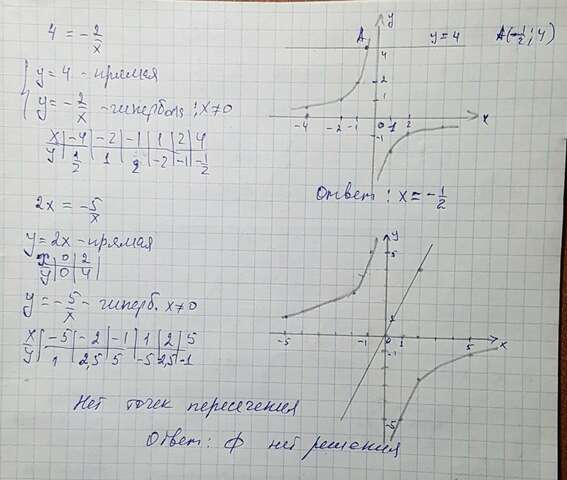 4 = -2/x
y = 4 - прямая
y = -2/x - гипербола; x≠0
x | -4 | -2 | -1 | 1 | 2 | 4
y | 1/2 | 1 | 2 | -2 | -1 | -1/2
y
A
y = 4
A(-1/2; 4)
4
2
1
-4 -2 -1 0 1 2 x
-1
Ответ: x = -1/2
2x = -5/x
y = 2x - прямая
x | 0 | 2
y | 0 | 4
y = -5/x - гиперб. x≠0
x | -5 | -2 | -1 | 1 | 2 | 5
y | 1 | 2,5 | 5 | -5 | -2,5 | -1
y
5
-5 -1 0 1 5 x
-1
-5
Нет точек пересечения
Ответ: ϕ нет решения